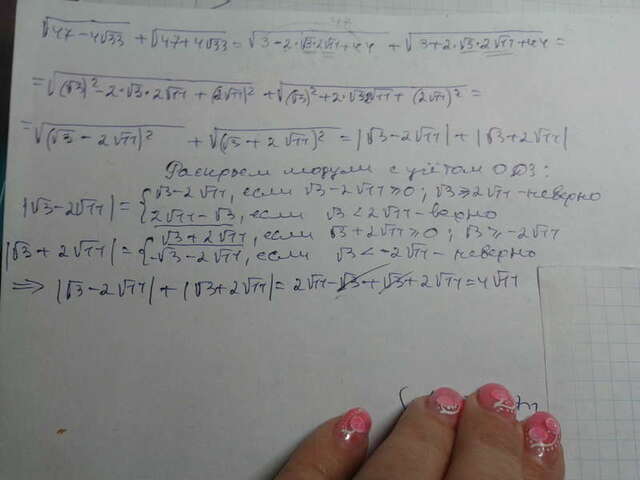 47
√(47-4√33) + √(47+4√33) = √(3-2·√3·2√11+44) + √(3+2·√3·2√11+44) =
= √((√3)²-2·√3·2√11+(2√11)²) + √((√3)²+2·√3·2√11+(2√11)²) =
= √((√3-2√11)²) + √((√3+2√11)²) = |√3-2√11| + |√3+2√11|
Раскроем модули с учётом ОДЗ:
|√3-2√11| = { √3-2√11, если √3-2√11⩾0; √3⩾2√11-неверно
2√11-√3, если √3<2√11-верно
|√3+2√11| = { √3+2√11, если √3+2√11⩾0; √3⩾-2√11
-√3-2√11, если √3<-2√11-неверно
⇒ |√3-2√11| + |√3+2√11| = 2√11-√3+√3+2√11=4√11